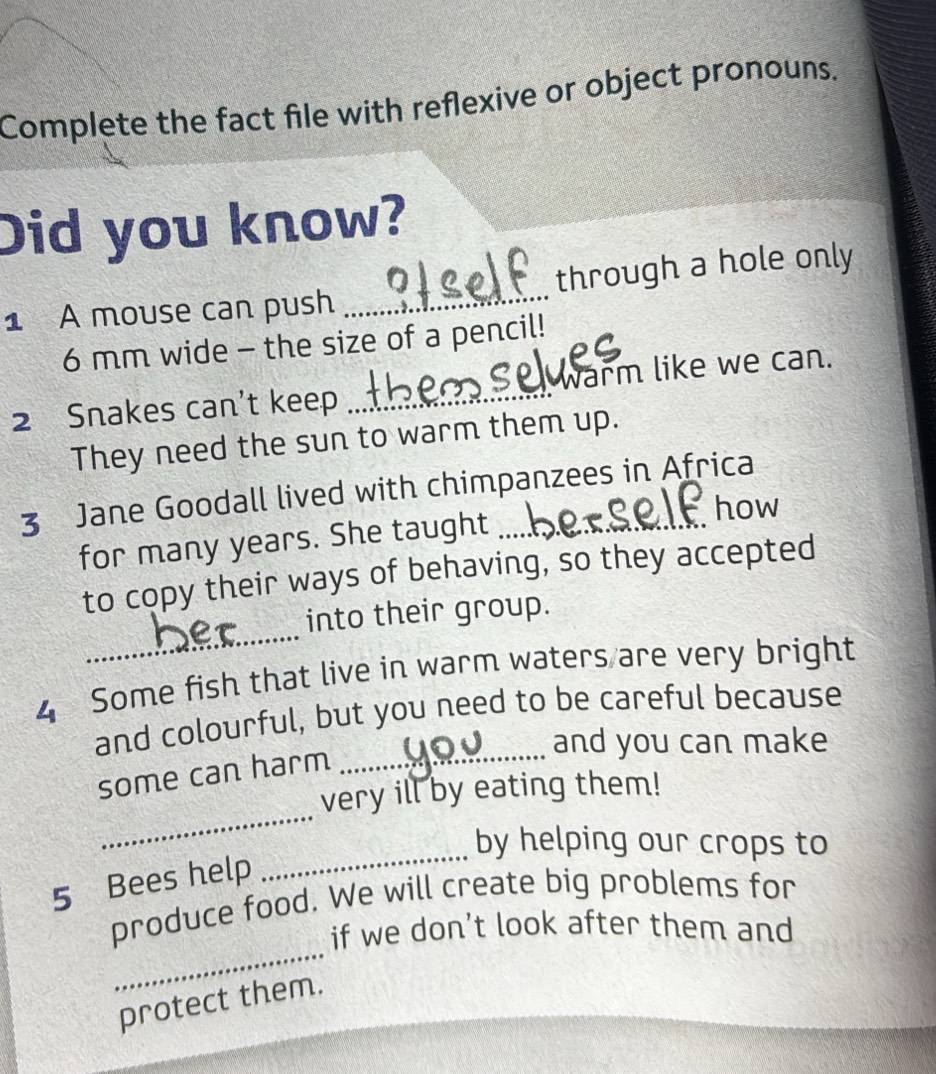 Complete the fact file with reflexive or object pronouns.
Did you know?
1 A mouse can push itself through a hole only
6 mm wide – the size of a pencil!
2 Snakes can't keep themselves warm like we can.
They need the sun to warm them up.
3 Jane Goodall lived with chimpanzees in Africa
for many years. She taught herself how
to copy their ways of behaving, so they accepted
her into their group.
4 Some fish that live in warm waters are very bright
and colourful, but you need to be careful because
some can harm you and you can make
.................... very ill by eating them!
5 Bees help .................... by helping our crops to
produce food. We will create big problems for
.................... if we don't look after them and
protect them.